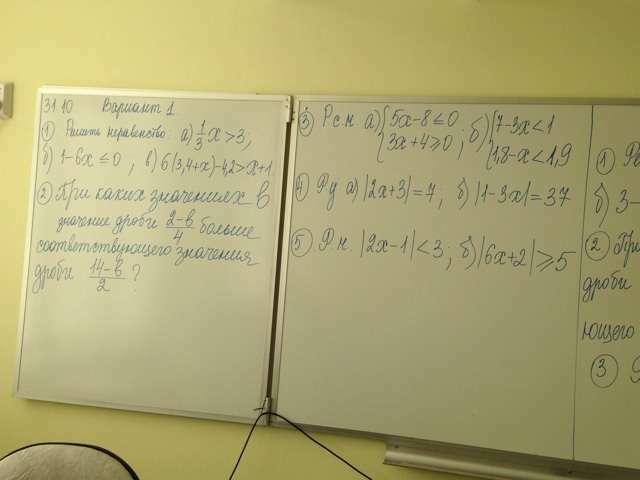 31.10 Вариант 1
① Решить неравенство: а) 1/3 x > 3,
б) 1-6x ≤ 0, в) 6(3,4+x)-4,2 > x+1
② При каких значениях b
значение дроби (2-b)/4 больше
соответствующего значения
дроби (14-b)/2 ?
③ Р с.н. а) { 5x-8 ≤ 0 ; б) { 7-3x < 1
3x+4 ≥ 0 1,8-x < 1,9
④ Р.у а) |2x+3| = 7; б) |1-3x| = 37
⑤ Р.н. |2x-1| < 3; б) |6x+2| ≥ 5
①
б) 3-
②
дроби
ющего
③